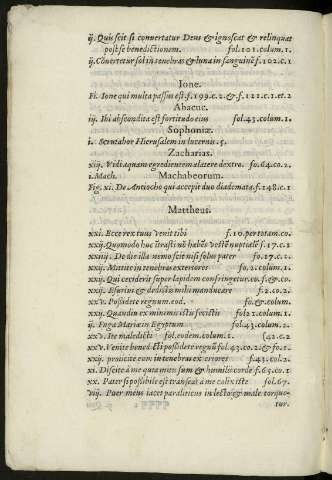 ij. Quis scit si convertatur Deus & ignoscat & relinquat
post se benedictionem. fol. 101. colum. 1.
ij. Cōvertetur sol in tenebras & luna in sanguinē f. 102. c. 1
Ione.
Fi. Ione qui multa passus est f. 199. c. 2. & f. 122. c. 1. et 2
Abacuc.
iij. Ibi abscondita est fortitudo eius fol. 43. colum. 1.
Sophoniæ.
i. Scrutabor Hierusalem in lucernis. 5.
Zacharias.
xiij. Vidi aquam egredientem a latere dextro. fo. 64. co. 2.
1. Mach. Machabeorum.
Fig. xi. De Antiocho qui accepit duo diademata. f. 148. c. 1
Mattheus.
xxi. Ecce rex tuus venit tibi f. 10. per totam co.
xxij. Quomodo huc ītrasti nō habēs vestē nuptialē f. 17. c. 1
xxiiij. De die illa nemo scit nisi solus pater fo. 17. c. 2.
xxij. Mittite in tenebras exteriores fo, 2. colum. 1.
xxij. Qui ceciderit super lapidem confringetur. co. & fo.
xxij. Esurivi & dedistis mihi manducare f. 2. co. 2.
xxv. Possidete regnum. eod. fo. & colum.
xxij. Quandiu ex minimis istis fecistis fol 2. colum. 1.
ij. Fuga Mariæ in Egyptum. fol. 2. colum. 1.
xxv. Ite maledicti fol. eodem. colum. 1. (42. c. 2
xxv. Venite bened̄icti possidete regnū fol. 43. co. 2. & fo.
xxij. proiicite eum in tenebras exteriores f. 43. col. 2.
xi. Discite à me quia mitis sum & humilis corde f. 65. co. 1
xx. Pater si possibile est transeat à me calix iste fol. 67.
viij. Puer meus iacet paraliticus in lecto & male torque-
tur.